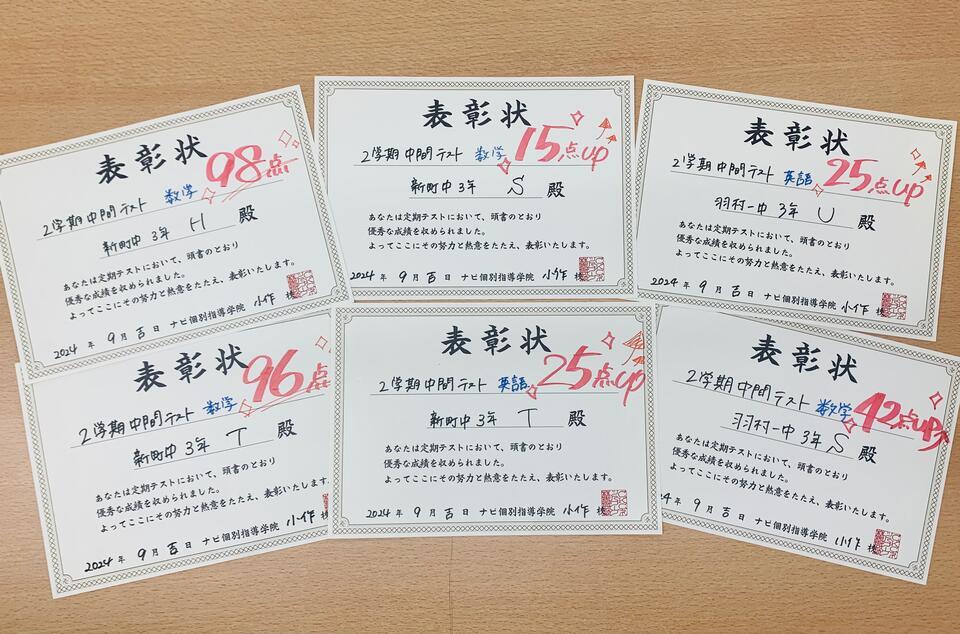 表彰状
2学期 中間テスト 数学 98点
新町中 3年 H 殿
あなたは定期テストにおいて、頭書のとおり
優秀な成績を収められました。
よってここにその努力と熱意をたたえ、表彰いたします。
2024 年 9 月 吉 日 ナビ個別指導学院 小作 校
表彰状
2学期 中間テスト 数学 15点up
新町中 3年 S 殿
あなたは定期テストにおいて、頭書のとおり
優秀な成績を収められました。
よってここにその努力と熱意をたたえ、表彰いたします。
2024 年 9 月 吉 日 ナビ個別指導学院 小作 校
表彰状
2学期 中間テスト 英語 25点up
羽村一中 3年 U 殿
あなたは定期テストにおいて、頭書のとおり
優秀な成績を収められました。
よってここにその努力と熱意をたたえ、表彰いたします。
2024 年 9 月 吉 日 ナビ個別指導学院 小作 校
表彰状
2学期 中間テスト 数学 96点
新町中 3年 T 殿
あなたは定期テストにおいて、頭書のとおり
優秀な成績を収められました。
よってここにその努力と熱意をたたえ、表彰いたします。
2024 年 9 月 吉 日 ナビ個別指導学院 小作 校
表彰状
2学期 中間テスト 英語 25点up
新町中 3年 T 殿
あなたは定期テストにおいて、頭書のとおり
優秀な成績を収められました。
よってここにその努力と熱意をたたえ、表彰いたします。
2024 年 9 月 吉 日 ナビ個別指導学院 小作 校
表彰状
2学期 中間テスト 数学 42点up
羽村一中 3年 S 殿
あなたは定期テストにおいて、頭書のとおり
優秀な成績を収められました。
よってここにその努力と熱意をたたえ、表彰いたします。
4 年 9 月 吉 日 ナビ個別指導学院 小作 校